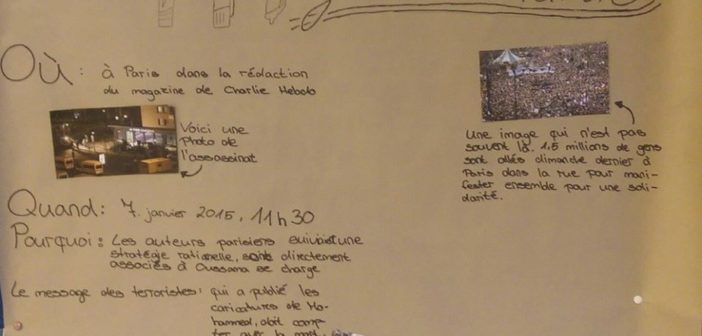 Où : à Paris dans la rédaction
du magazine de Charlie Hebdo
Voici une
Photo de
l'assassinat
Une image qui n'est pas
souvent là. 1,5 millions de gens
sont allés dimanche dernier à
Paris dans la rue pour mani-
fester ensemble pour une soli-
darité.
Quand: 7. janvier 2015, 11h30
Pourquoi: Les auteurs parisiens suivaient une
stratégie rationelle, sont directement
associés à Oussama se charge
Le message des terroristes: qui a publié les
caricatures de Mo-
hammed, doit comp-
ter avec la mort.